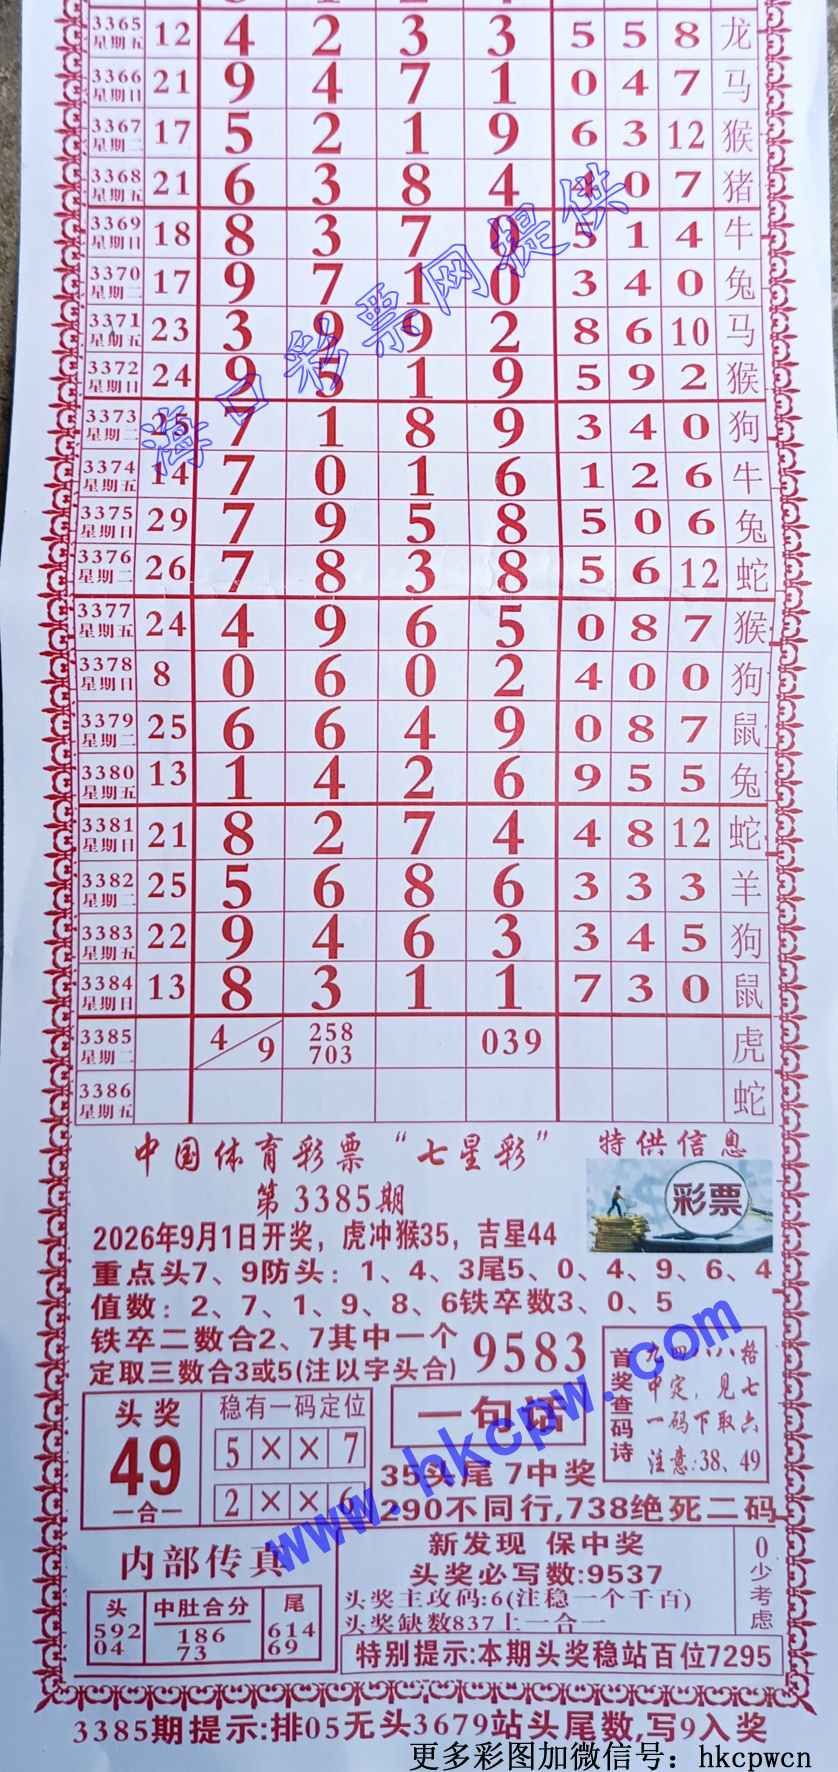 3365 星期五 12 4 2 3 3 5 5 8 龙
3366 星期日 21 9 4 7 1 0 4 7 马
3367 星期二 17 5 2 1 9 6 3 12 猴
3368 星期五 21 6 3 8 4 4 0 7 猪
3369 星期日 18 8 3 7 0 5 1 4 牛
3370 星期二 17 9 7 1 0 3 4 0 兔
3371 星期五 23 3 9 9 2 8 6 10 马
3372 星期日 24 9 5 1 9 5 9 2 猴
3373 星期二 25 7 1 8 9 3 4 0 狗
3374 星期五 14 7 0 1 6 1 2 6 牛
3375 星期日 29 7 9 5 8 5 0 6 兔
3376 星期二 26 7 8 3 8 5 6 12 蛇
3377 星期五 24 4 9 6 5 0 8 7 猴
3378 星期日 8 0 6 0 2 4 0 0 狗
3379 星期二 25 6 6 4 9 0 8 7 鼠
3380 星期五 13 1 4 2 6 9 5 5 兔
3381 星期日 21 8 2 7 4 4 8 12 蛇
3382 星期二 25 5 6 8 6 3 3 3 羊
3383 星期五 22 9 4 6 3 3 4 5 狗
3384 星期日 13 8 3 1 1 7 3 0 鼠
3385 星期二 4/9 258 703 039 虎
3386 星期五 蛇
海口彩票网提供
中国体育彩票“七星彩” 特供信息
第3385期
彩票
2026年9月1日开奖，虎冲猴35，吉星44
重点头7、9防头：1、4、3尾5、0、4、9、6、4
值数：2、7、1、9、8、6铁卒数3、0、5
铁卒二数合2、7其中一个
定取三数合3或5(注以字头合)
9583
首奖查码诗
九四八八格
中定，见七
一码下取六
注意:38、49
头奖
49
一合一
稳有一码定位
5 × × 7
2 × × 6
一句话
35头尾 7中奖
290不同行,738绝死二码
www.hkcpw.com
内部传真
头 592 04
中肚合分 186 73
尾 614 69
新发现 保中奖
头奖必写数:9537
头奖主攻码:6(注稳一个千百)
头奖缺数837上一合一
0少考虑
特别提示:本期头奖稳站百位7295
3385期提示:排05无头3679站头尾数,写9入奖
更多彩图加微信号：hkcpwcn